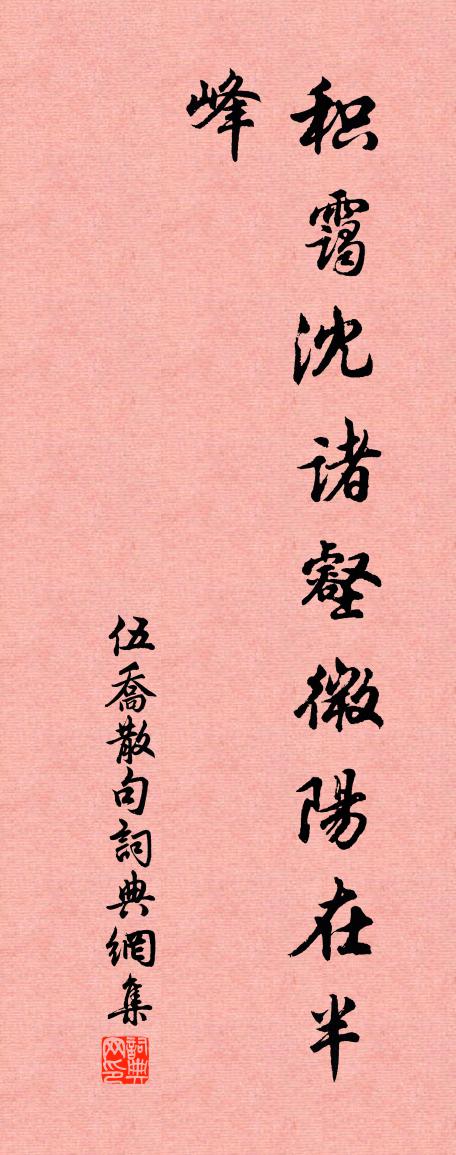 积靄沈诸壑微陽在半
峰
伍喬散句詞典網集
詞典网印